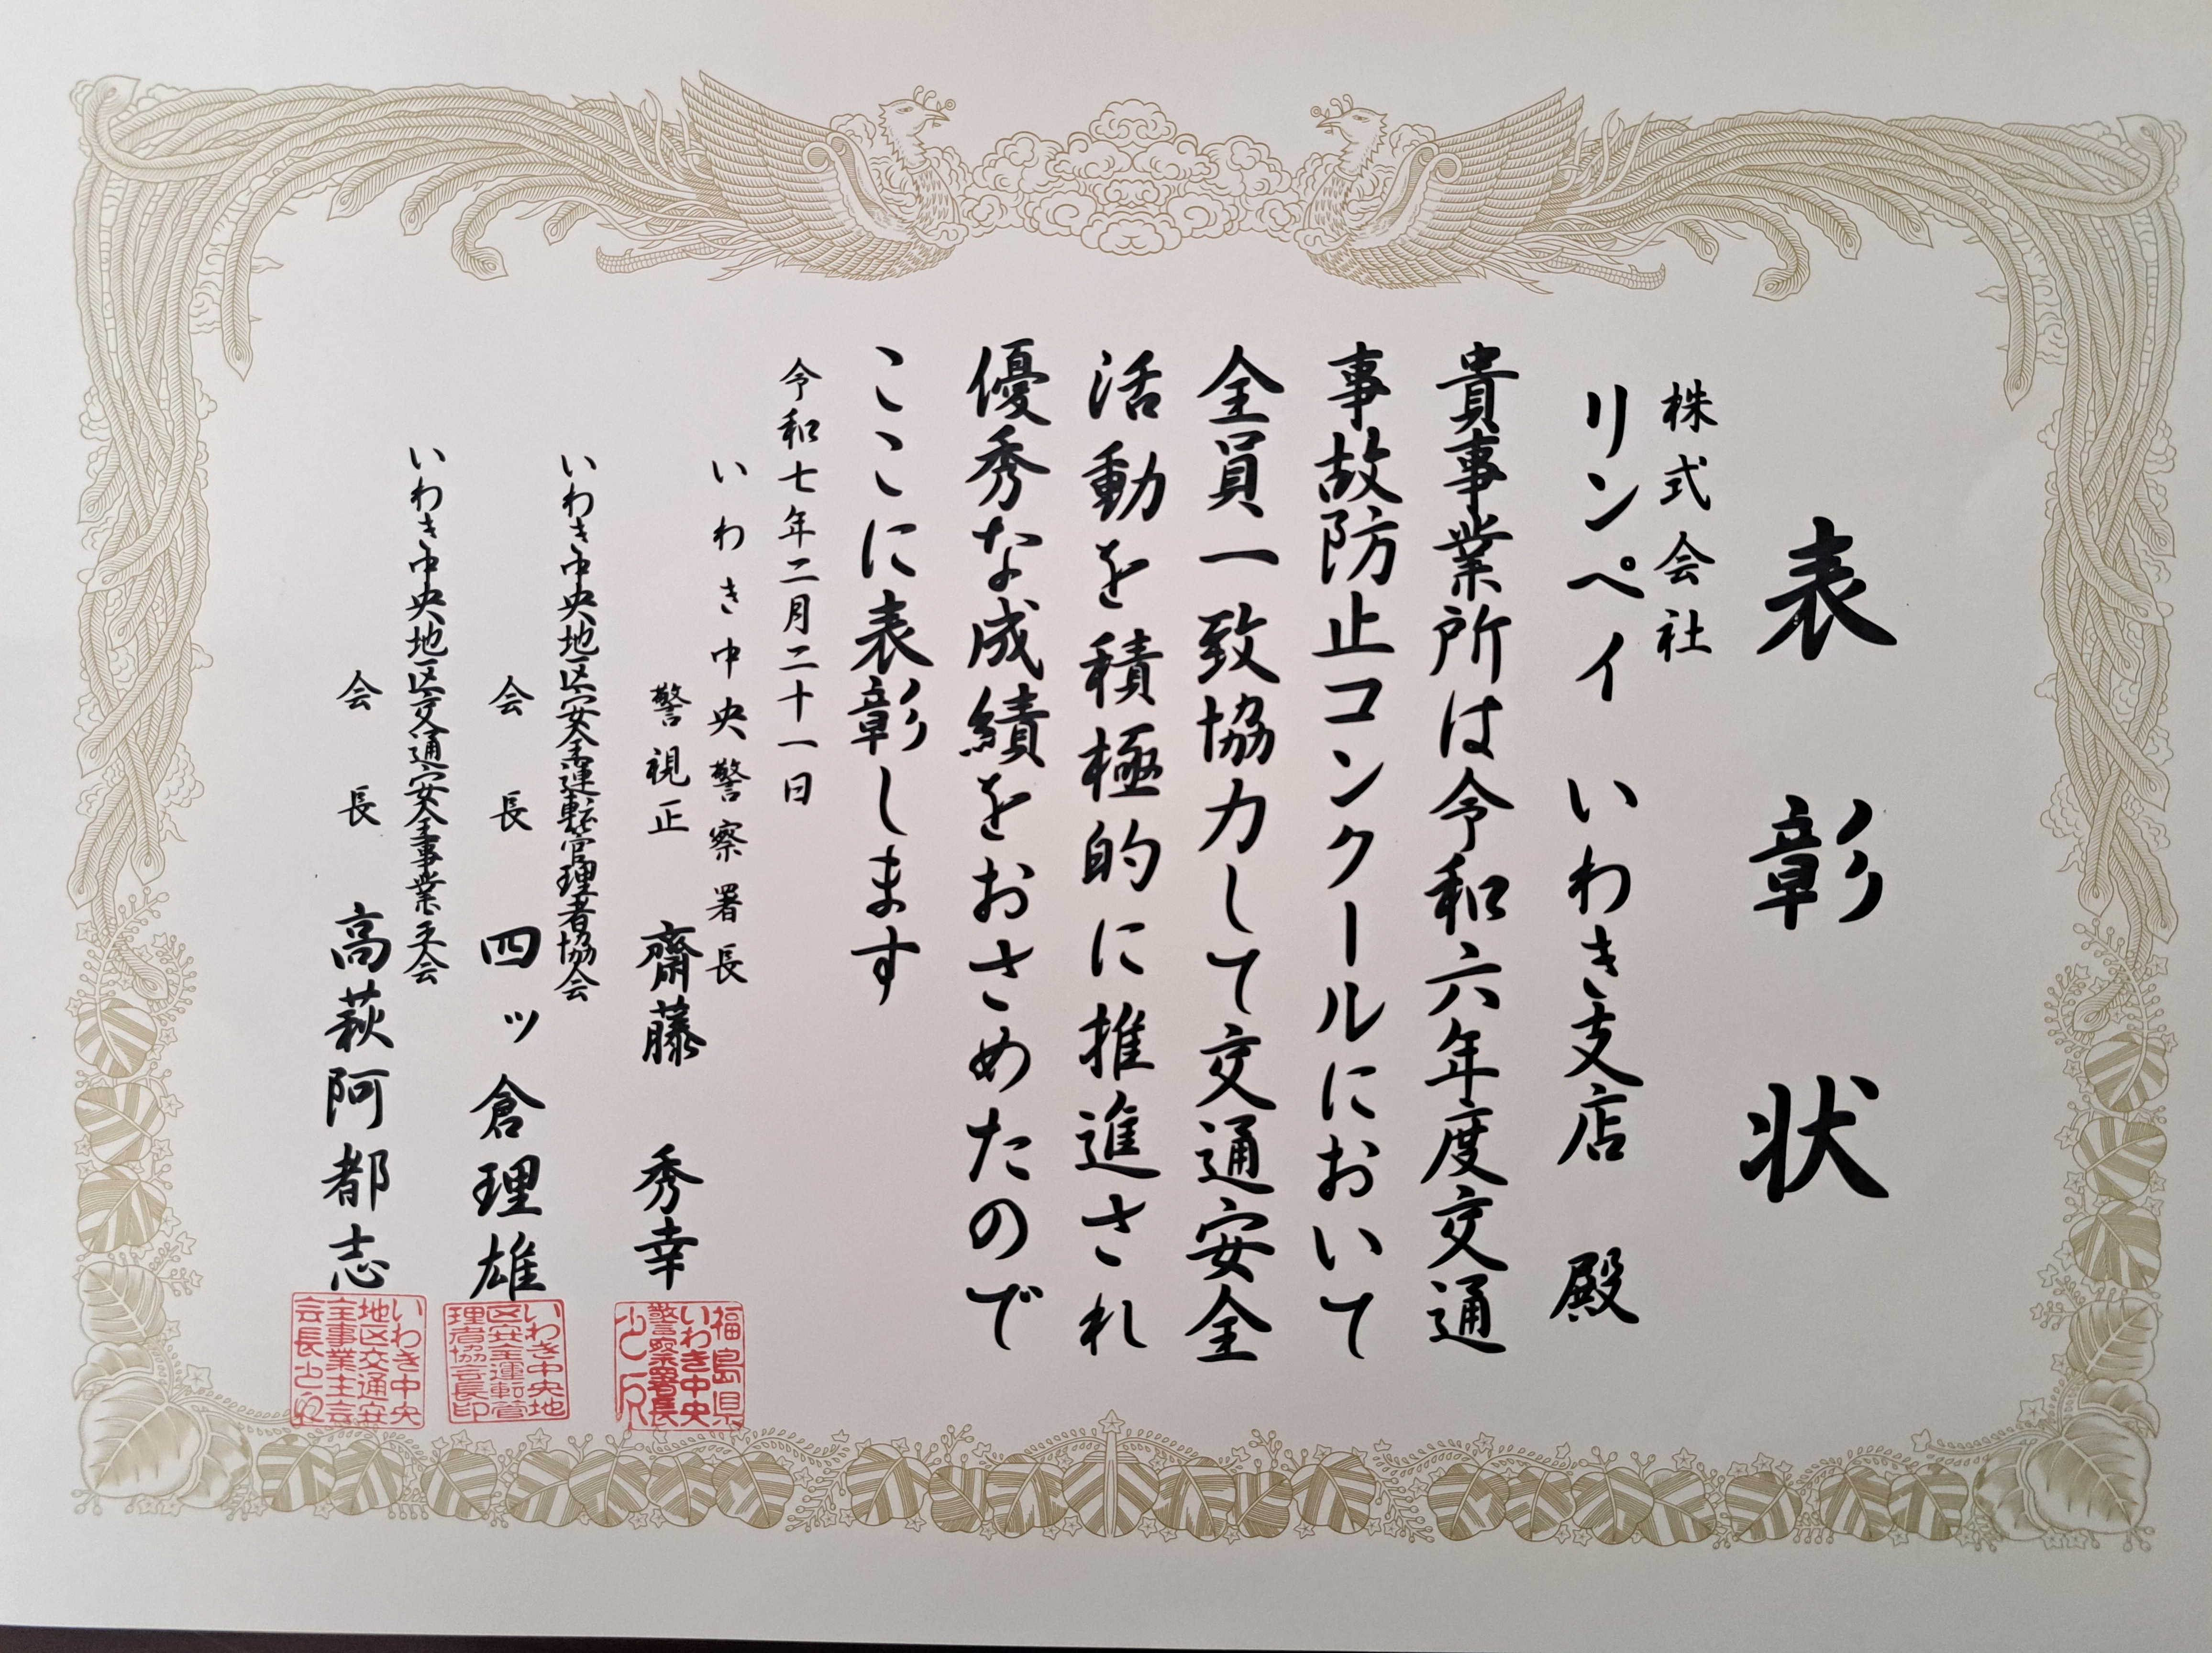 表彰状
株式会社
リンペイ いわき支店 殿
貴事業所は令和六年度交通
事故防止コンクールにおいて
全員一致協力して交通安全
活動を積極的に推進され
優秀な成績をおさめたので
ここに表彰します
令和七年二月二十一日
いわき中央警察署長
警視正 齋藤 秀幸
いわき中央地区安全運転管理者協会
会長 四ッ倉理雄
いわき中央地区交通安全事業主会
会長 高萩阿都志
福島県
いわき中央
警察署長
之印
いわき中央地
区安全運転管
理者協会長印
いわき中央
地区交通安
全事業主会
会長之印